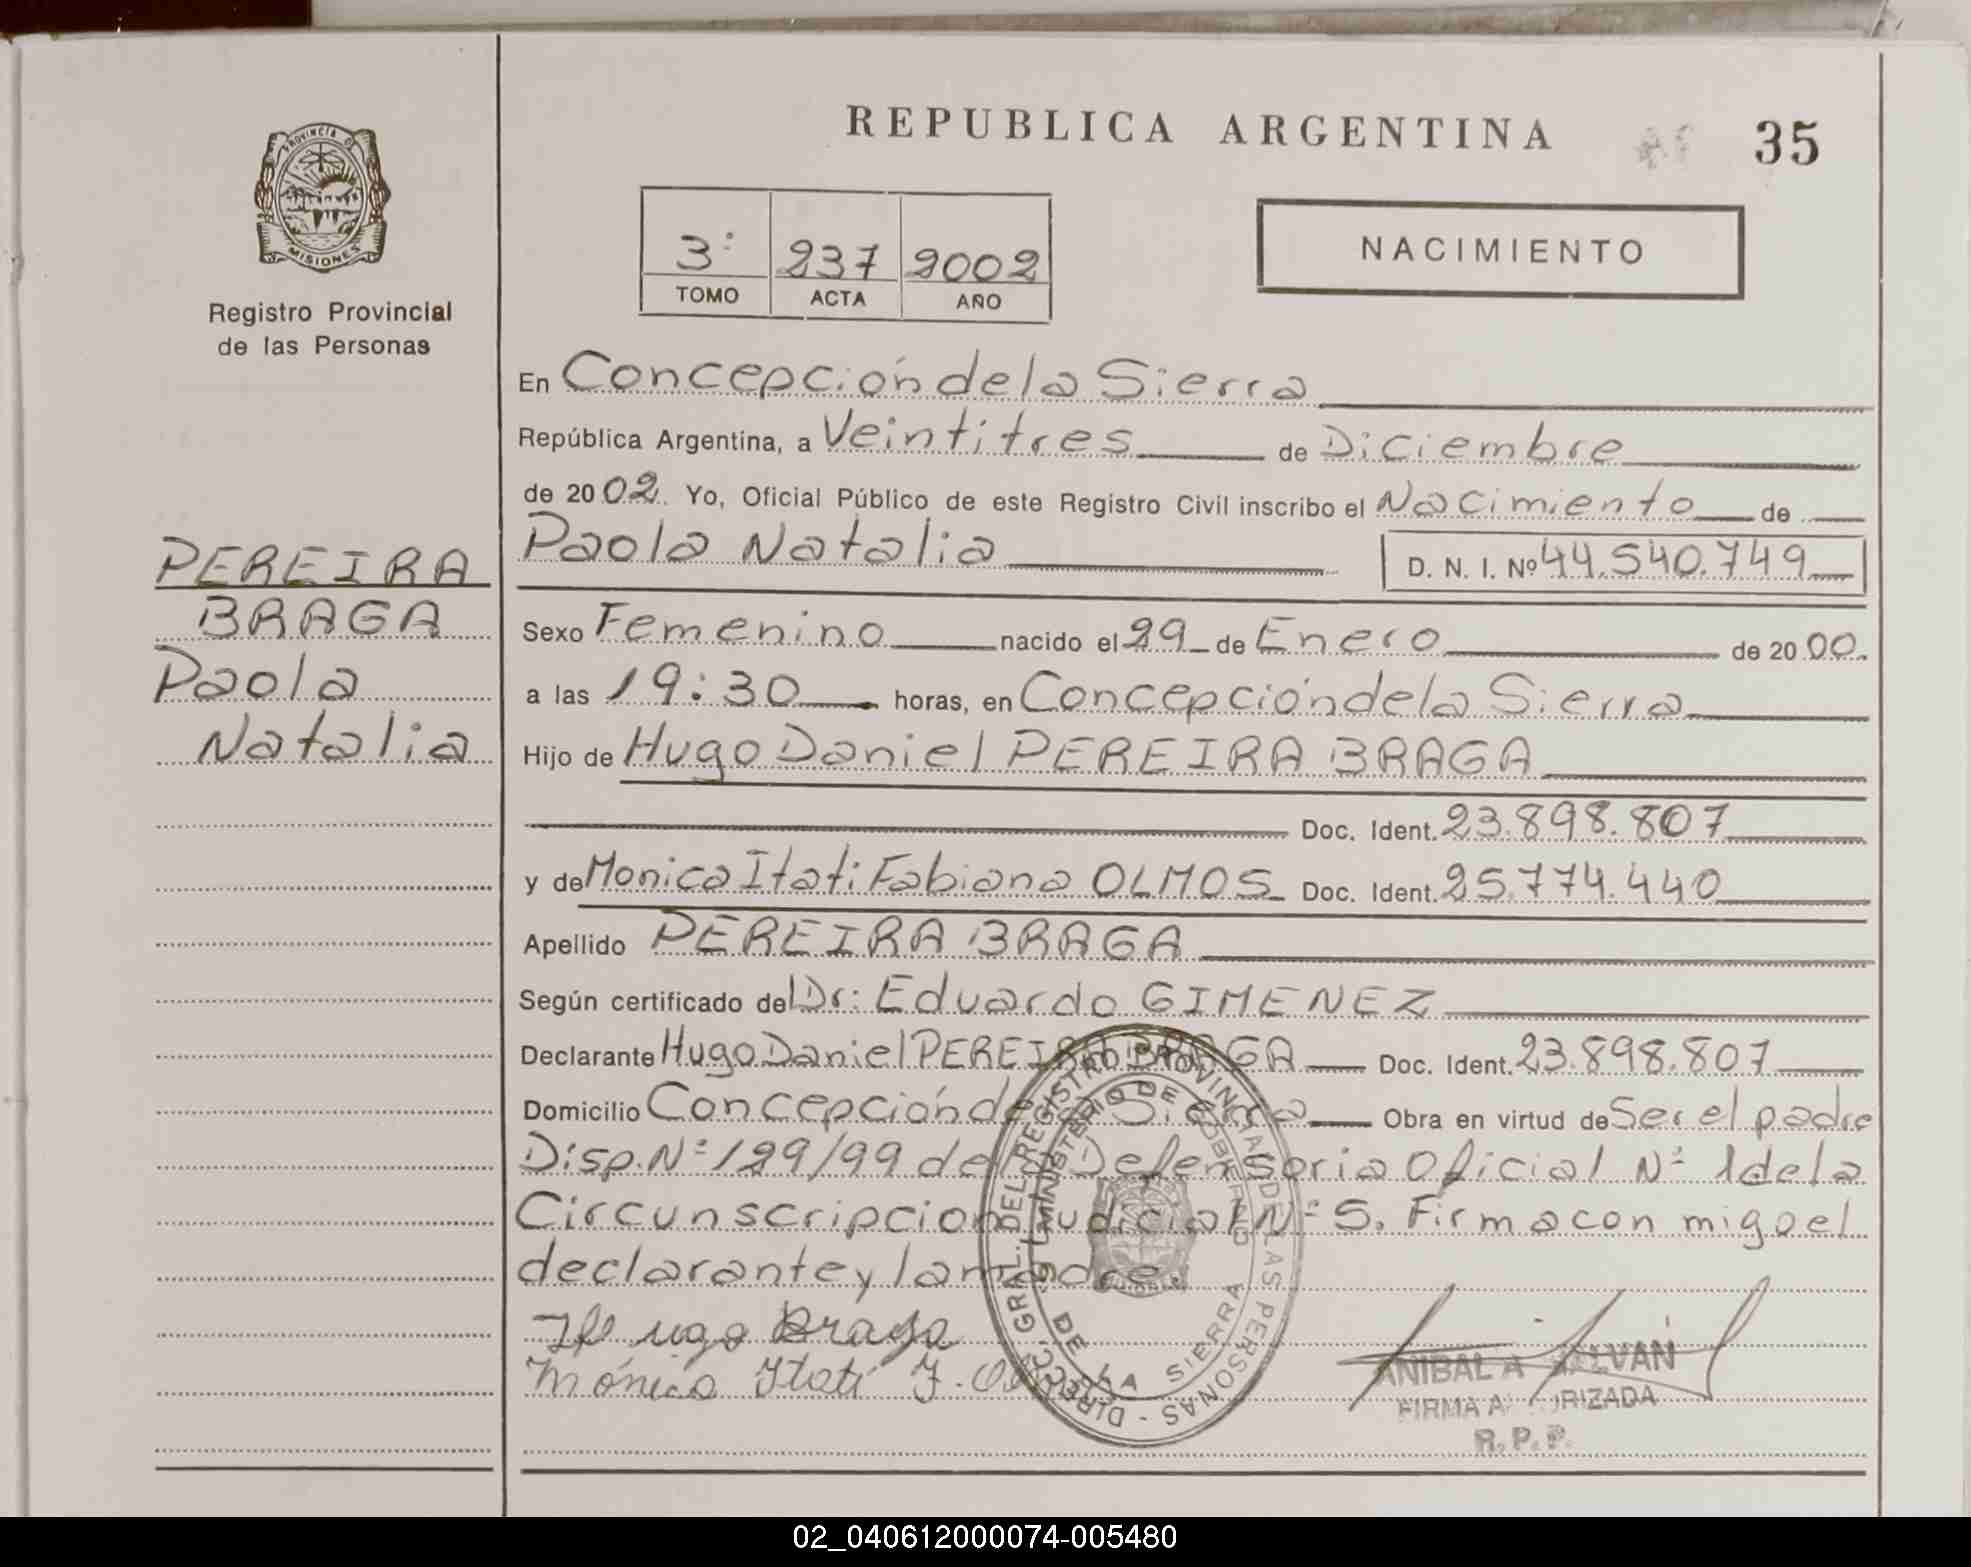 REPUBLICA ARGENTINA
35
PROVINCIA DE
MISIONES
Registro Provincial
de las Personas
3º 237 2002
TOMO ACTA AÑO
NACIMIENTO
PEREIRA
BRAGA
Paola
Natalia
En Concepción de la Sierra
República Argentina, a Veintitres de Diciembre
de 2002. Yo, Oficial Público de este Registro Civil inscribo el Nacimiento de
Paola Natalia D. N. I. Nº 44.540.749
Sexo Femenino nacido el 29 de Enero de 2000.
a las 19:30 horas, en Concepción de la Sierra
Hijo de Hugo Daniel PEREIRA BRAGA
Doc. Ident. 23.898.807
y de Monica Itati Fabiana OLMOS Doc. Ident. 25.774.440
Apellido PEREIRA BRAGA
Según certificado del Dr: Eduardo GIMENEZ
Declarante Hugo Daniel PEREIRA BRAGA Doc. Ident. 23.898.807
Domicilio Concepción de la Sierra Obra en virtud de Ser el padre
Disp. Nº 129/99 de la Defensoria Oficial Nº 1 de la
Circunscripcion Judicial Nº 5. Firma con migo el
declarante y la madre.
Hugo Braga
Mónica Itatí F.
DIRECC. GRAL. DEL REGISTRO PROVINCIAL DE LAS PERSONAS
MINISTERIO DE GOBIERNO
DE LA SIERRA
ANIBAL A GALVAN
FIRMA AUTORIZADA
R. P. P.
02_040612000074-005480